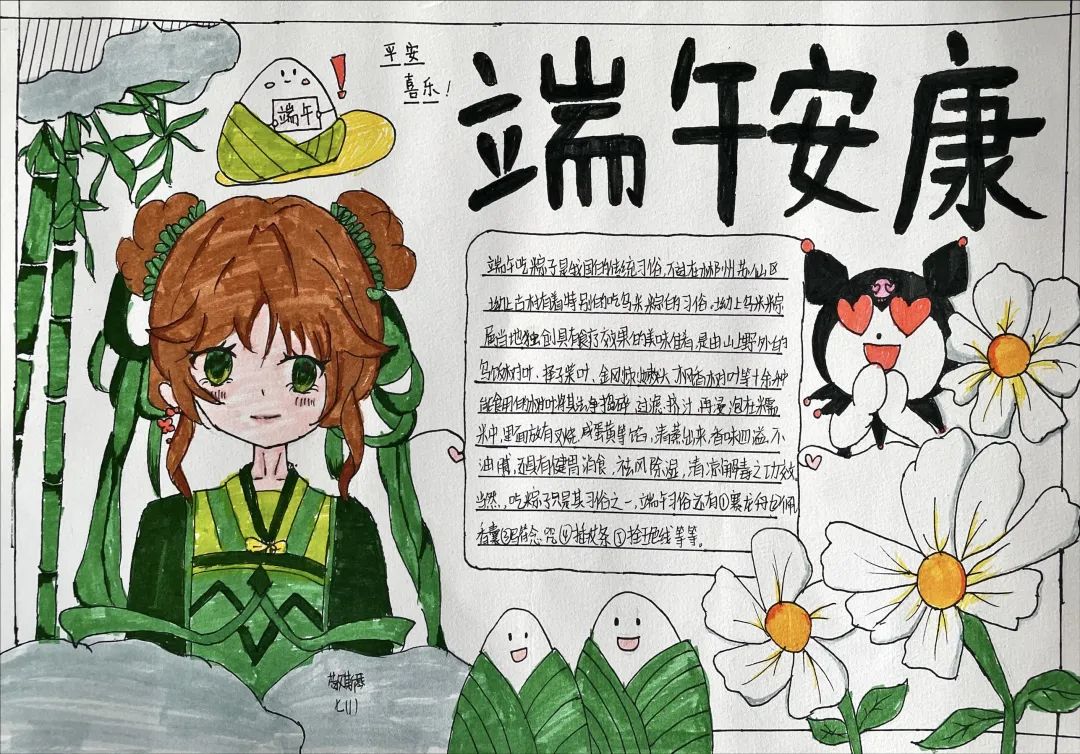 平安
喜乐!
端午
端午安康
端午吃粽子是我国的传统习俗,不过在郴州苏仙区
坳上古村有着特别的吃乌米粽的习俗。坳上乌米粽
属当地独创具有食疗效果的美味佳肴,是由山上野外的
乌饭树叶、择子柴叶、金风嫩头、枫香树叶等十余种
能食用的树叶将其洗净捣碎、过滤、挤汁,再浸泡在糯
米中,里面放有叉烧、咸蛋黄等馅,清蒸出来,香味四溢,不
油腻,还具有健胃消食,祛风除湿,清凉解毒之功效
当然,吃粽子只是其习俗之一,端午习俗还有①赛龙舟②佩
香囊③念咒④插艾条⑤拴五色线等等。